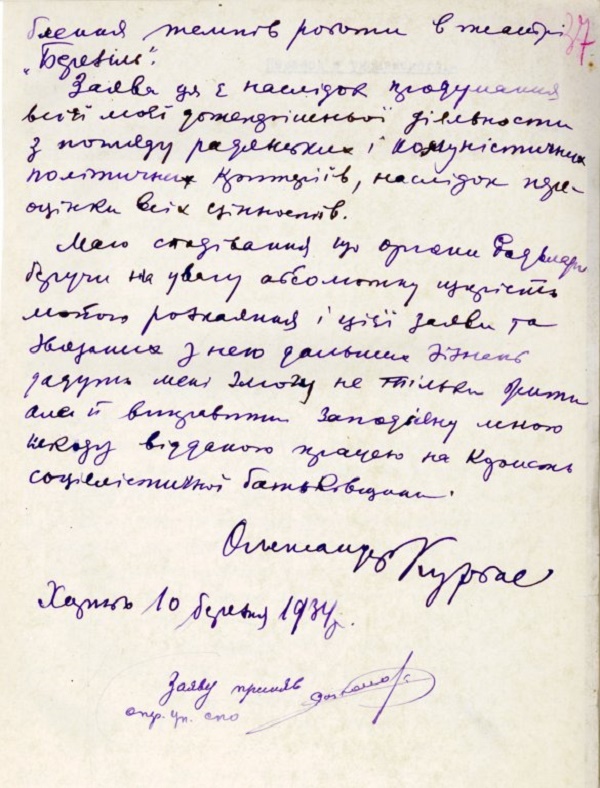 блення темпів роботи в театрі 37
„Березіль".
Заява ця є наслідок продумання
всієї моєї дотеперішньої діяльности
з погляду радянських і комуністичних
політичних критеріїв, наслідок пере-
оцінки всіх цінностей.
Маю сподівання що органи Радвлади
беручи на увагу абсолютну щирість
мойого розкаяння і цієї заяви та
звязаних з нею дальших зізнань
дадуть мені змогу не тільки жити
але й виправити заподіяну мною
шкоду відданою працею на користь
соціялістичної батьківщини.
Олександр Курбас
Харків 10 березня 1934р.
Заяву приняв
опер. уп. спо